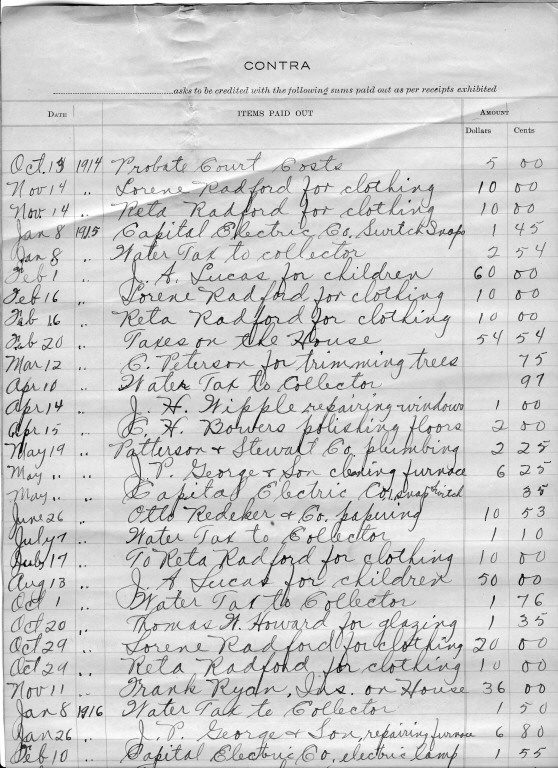 CONTRA
asks to be credited with the following sums paid out as per receipts exhibited
DATE ITEMS PAID OUT AMOUNT
Dollars Cents
Oct. 13 1914 Probate Court Costs 5 00
Nov 14 " Lorene Radford for clothing 10 00
Nov. 14 " Reta Radford for clothing 10 00
Jan 8 1915 Capital Electric Co, Switch Snaps 1 45
Jan 8 " Water Tax to collector 2 54
Feb 1 " J. A. Lucas for children 60 00
Feb 16 " Lorene Radford for clothing 10 00
Feb 16 " Reta Radford for clothing 10 00
Feb 20 " Taxes on the House 54 54
Mar 12 " C. Peterson for trimming trees 75
Apr 10 " Water Tax to Collector 97
Apr 14 " J. H. Wipple repairing windows 1 00
Apr 15 " C. H. Bowers polishing floors 2 00
May 19 " Patterson & Stewart Co, plumbing 2 25
May " " J. P. George & Son cleaning furnace 6 25
May " " Capital Electric Co, snap switch 35
June 26 " Otto Redeker & Co. papering 10 53
July 7 " Water Tax to Collector 1 10
July 17 " To Reta Radford for clothing 10 00
Aug 13 " J. A. Lucas for children 50 00
Oct 1 " Water Tax to Collector 1 76
Oct 20 " Thomas W. Howard for glazing 1 35
Oct 29 " Lorene Radford for clothing 20 00
Oct 29 " Reta Radford for clothing 10 00
Nov 11 " Frank Ryan, Ins. on House 36 00
Jan 8 1916 Water Tax to Collector 1 50
Jan 26 " J. P. George & Son, repairing furnace 6 80
Feb 10 " Capital Electric Co, electric lamp 1 55